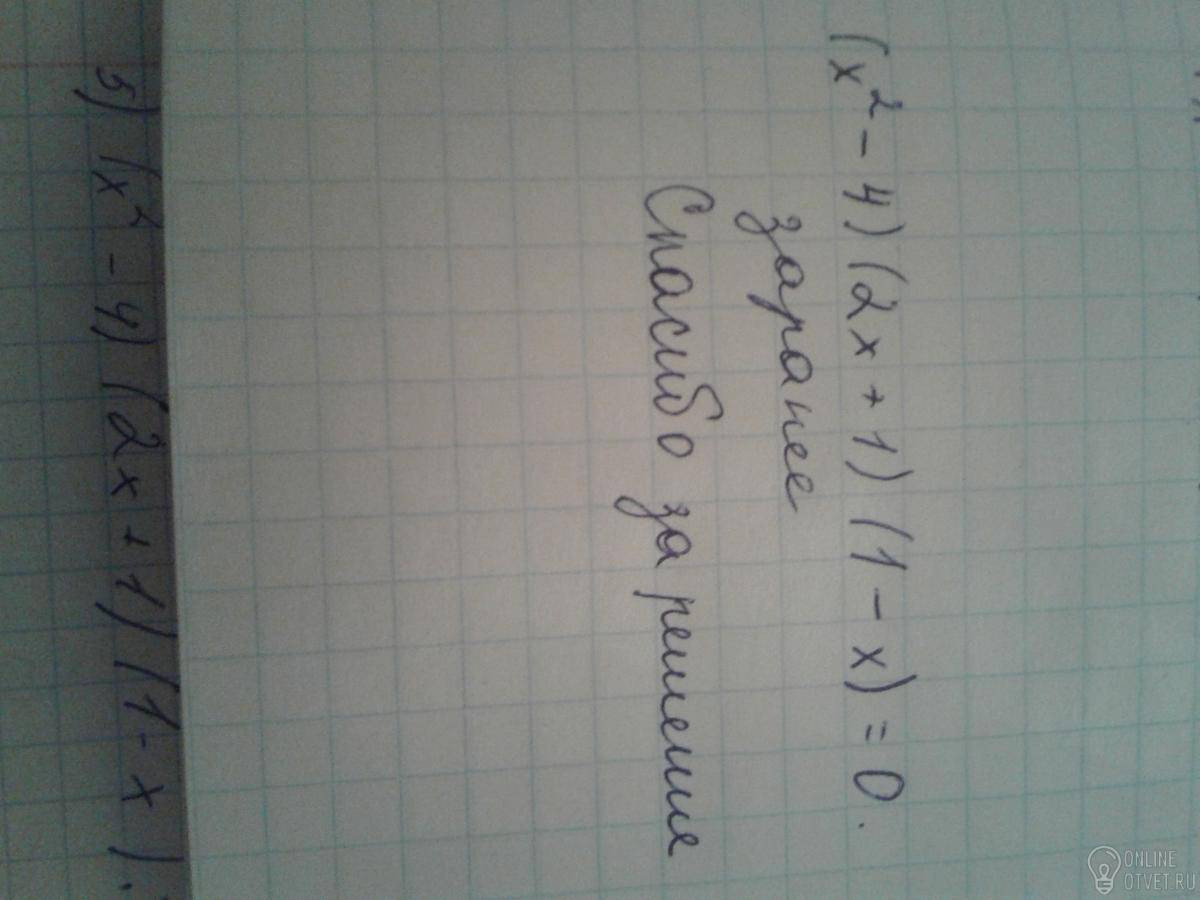 (x² - 4) (2x + 1) (1 - x) = 0.
заранее
Спасибо за решение
5) (x² - 4) (2x + 1) (1 - x)
ONLINE
OTVET.RU